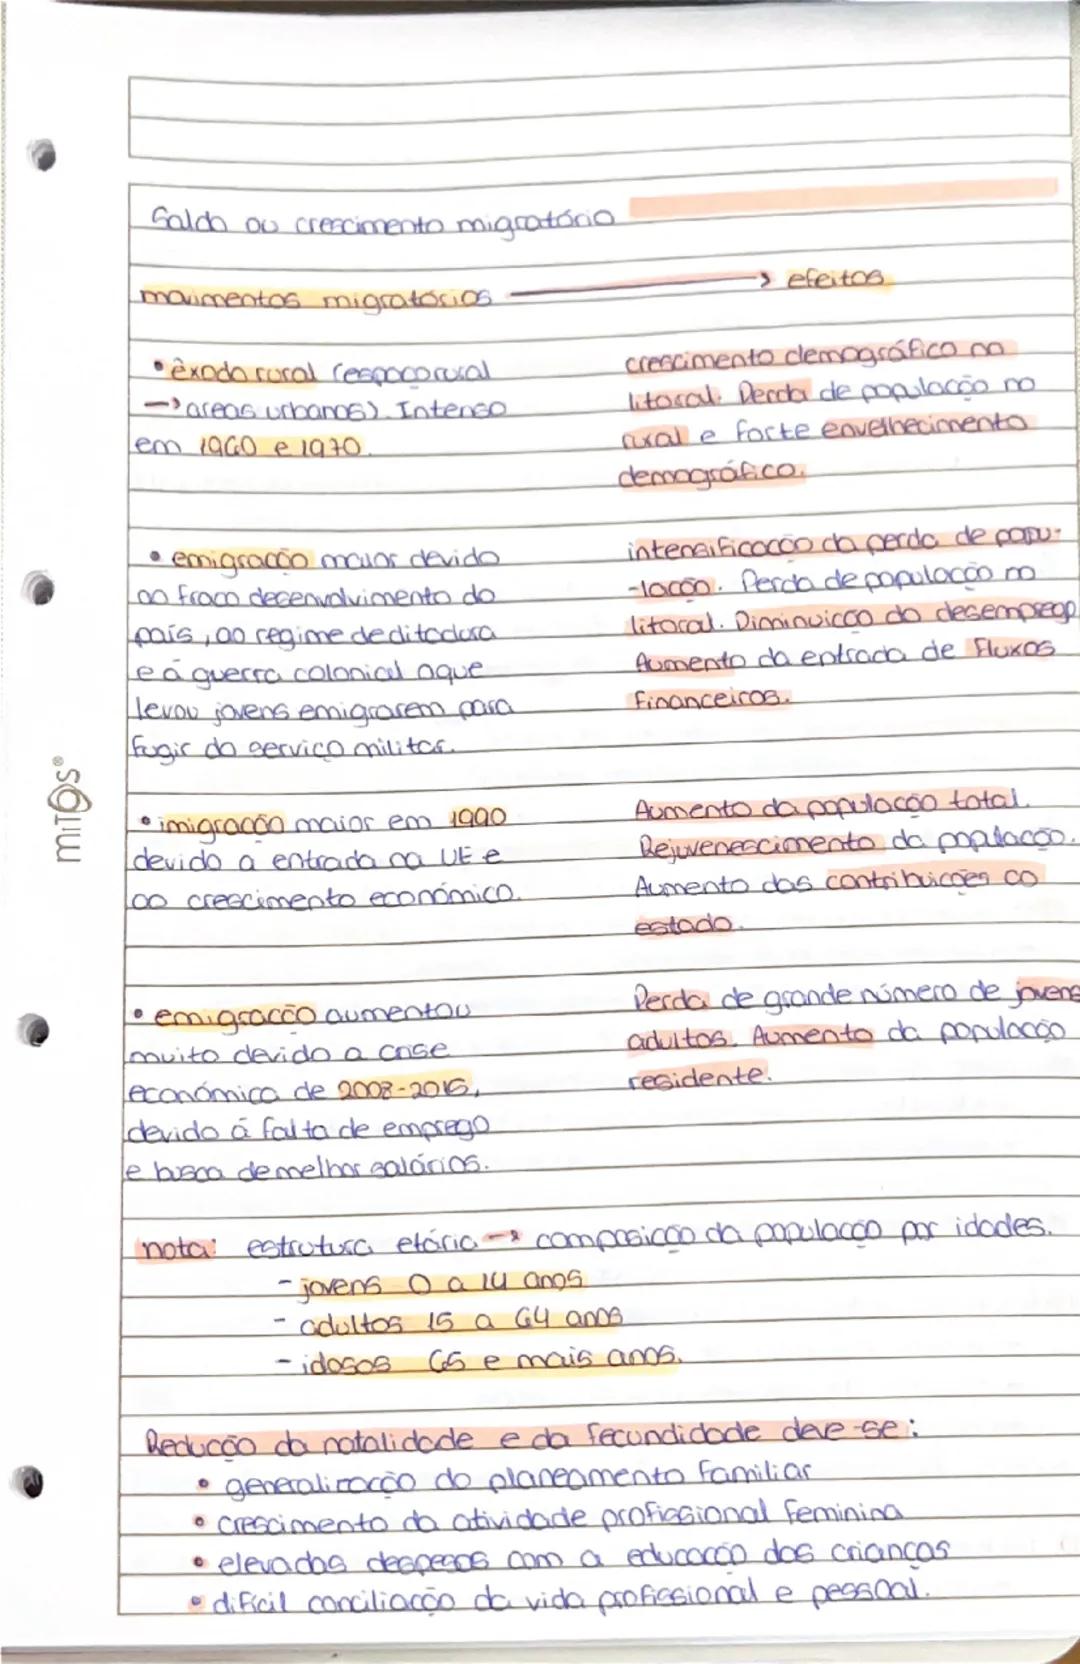 Saldo ou crescimento migratório
movimentos migratórios → efeitos
• êxodo rural (espaço rural
→ areas urbanas). Intenso
em 1960 e 1970.
crescimento demográfico no
litoral. Perda de população no
rural e forte envelhecimento
demográfico.
• emigração maior devido
ao fraco desenvolvimento do
país, ao regime de ditadura
e á guerra colonial oque
levou jovens emigrarem para
fugir do serviço militar.
intensificação da perda de popu-
-lação. Perda de população no
litoral. Diminuição do desemprego
Aumento da entrada de fluxos
financeiros.
• imigração maior em 1990
devido a entrada na UE e
ao crescimento económico.
Aumento da população total.
Rejuvenescimento da população.
Aumento das contribuições ao
estado.
• emigração aumentou
muito devido a crise
económica de 2008-2016,
devido á falta de emprego
e busca de melhor salários.
Perda de grande número de jovens
adultos. Aumento da população
residente.
nota: estrutura etária → composição da população por idades.
- jovens 0 a 14 anos
- adultos 15 a 64 anos
- idosos 65 e mais anos.
Redução da natalidade e da fecundidade deve-se:
• generalização do planeamento familiar
• crescimento da atividade profissional feminina
• elevadas despesas com a educação das crianças
• dificil conciliação da vida profissional e pessoal.
mitos®